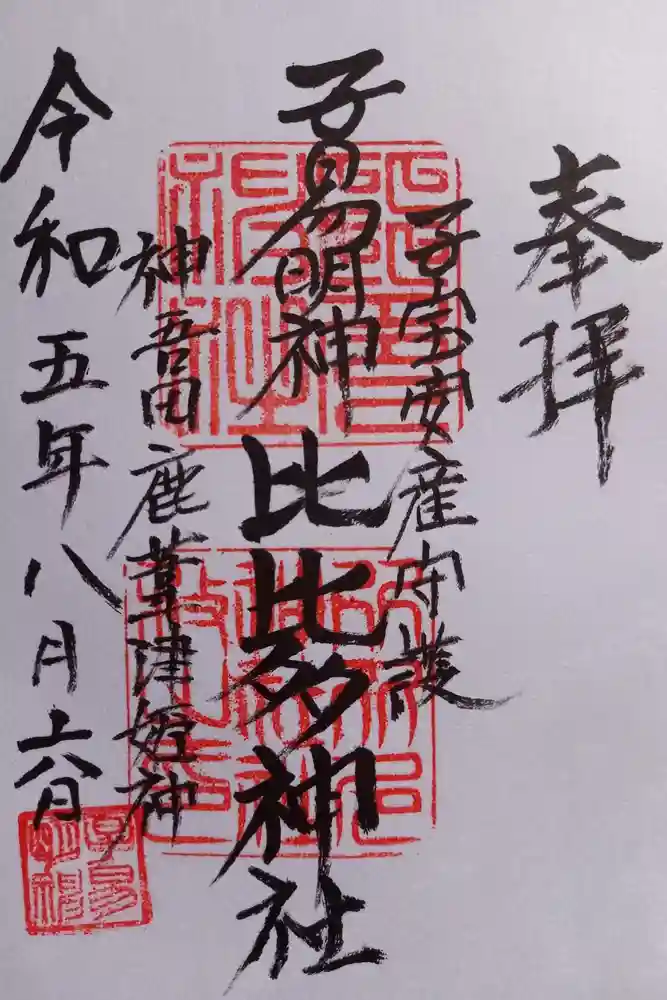 奉拝
子宝安産守護
子易明神 比比多神社
神吾田鹿葦津姫神
令和五年八月十六日
子易
明神